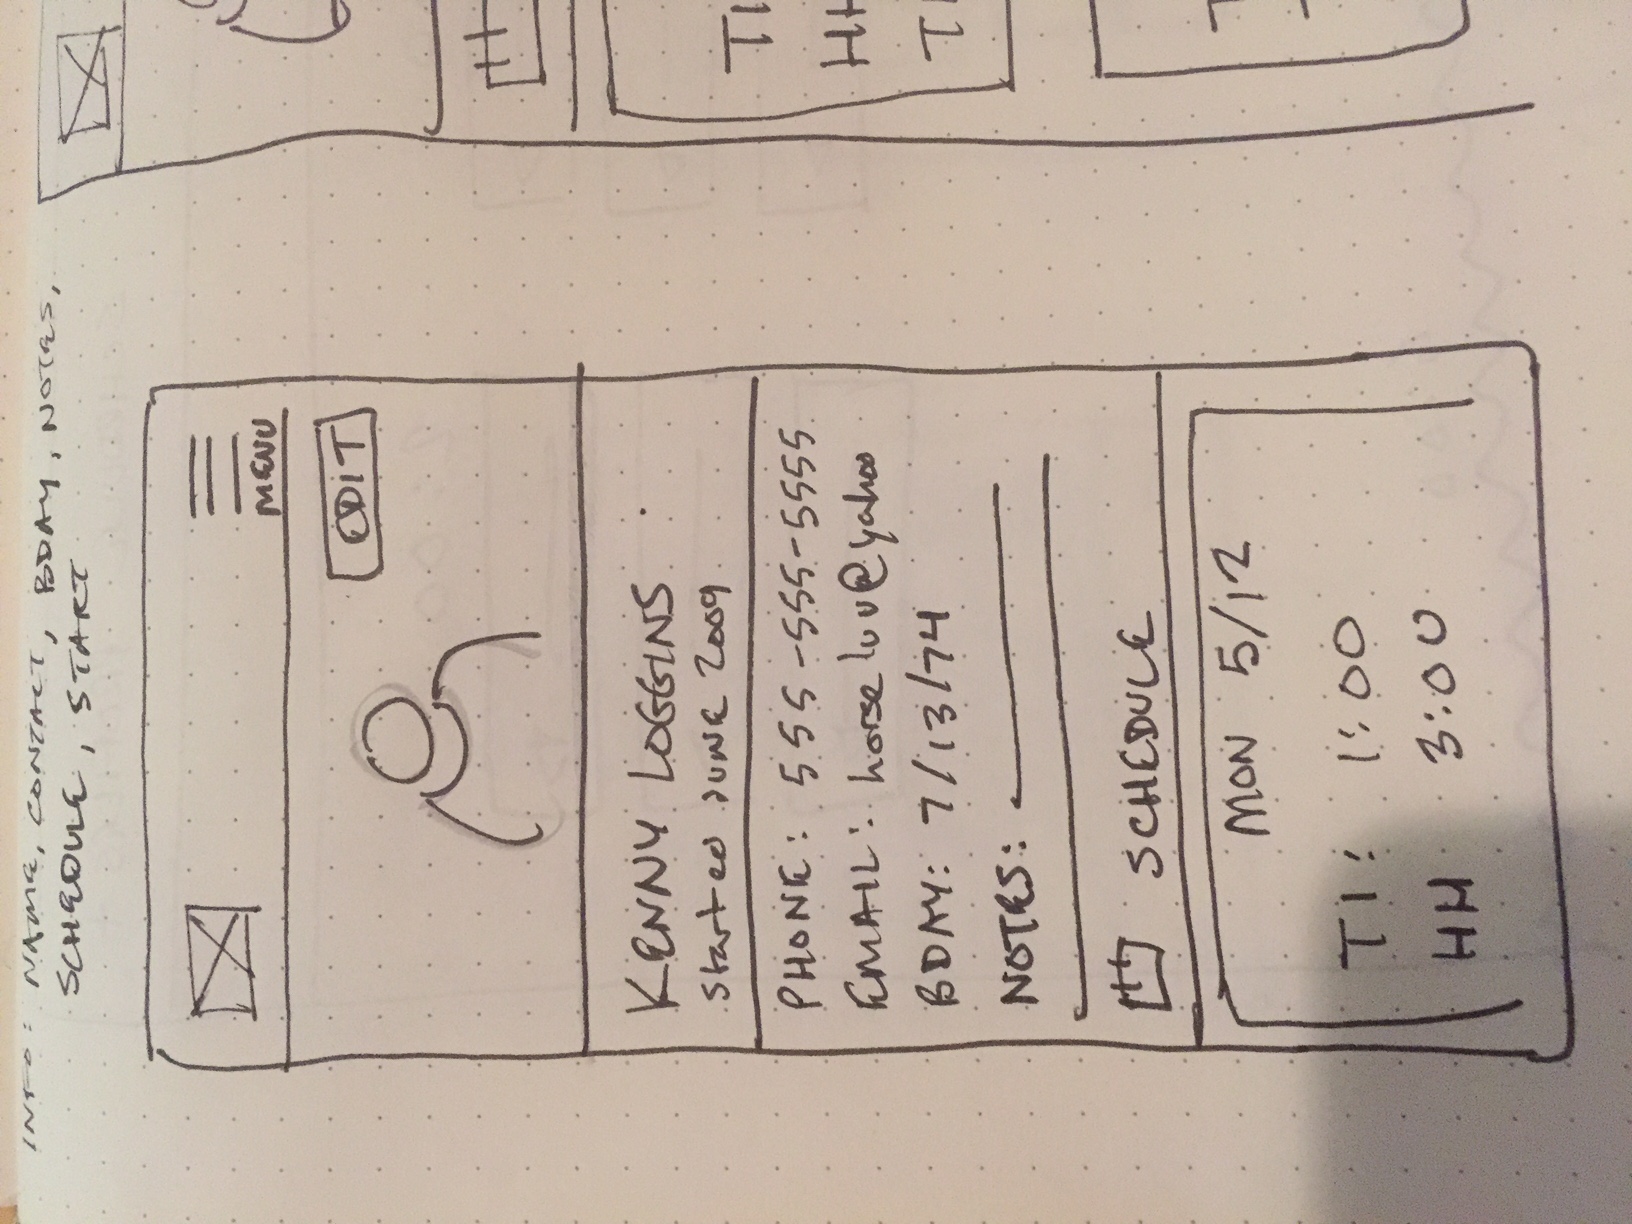 INFO: NAME, CONTACT, BDAY, NOTES,
SCHEDULE, START
MENU
EDIT
KENNY LOGGINS
Started JUNE 2009
PHONE: 555-555-5555
EMAIL: horseluv@yahoo
BDAY: 7/13/74
NOTES:
SCHEDULE
MON 5/12
TI: 1:00
HH 3:00
TI
HH